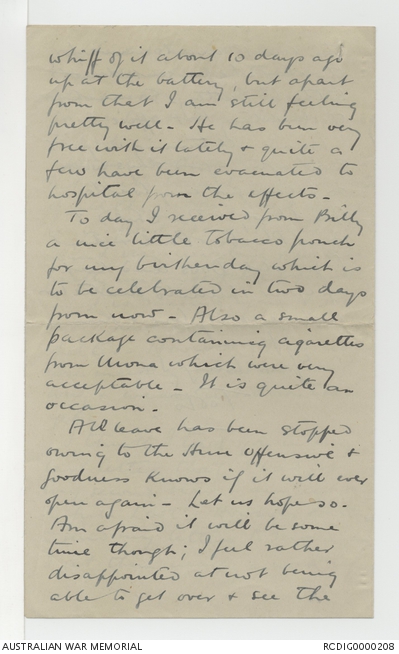 whiff of it about 10 days ago
up at the battery, but apart
from that I am still feeling
pretty well - He has been very
free with it lately & quite a
few have been evacuated to
hospital from the effects -
To day I received from Billy
a nice little tobacco pouch
for my birthenday which is
to be celebrated in two days
from now - Also a small
package containing cigarettes
from Mona which were very
acceptable - It is quite an
occasion -
All leave has been stopped
owing to the Hun offensive &
goodness knows if it will ever
open again - Let us hope so -
Am afraid it will be some
time though; I feel rather
disappointed at not being
able to get over & see the
AUSTRALIAN WAR MEMORIAL
RCDIG0000208